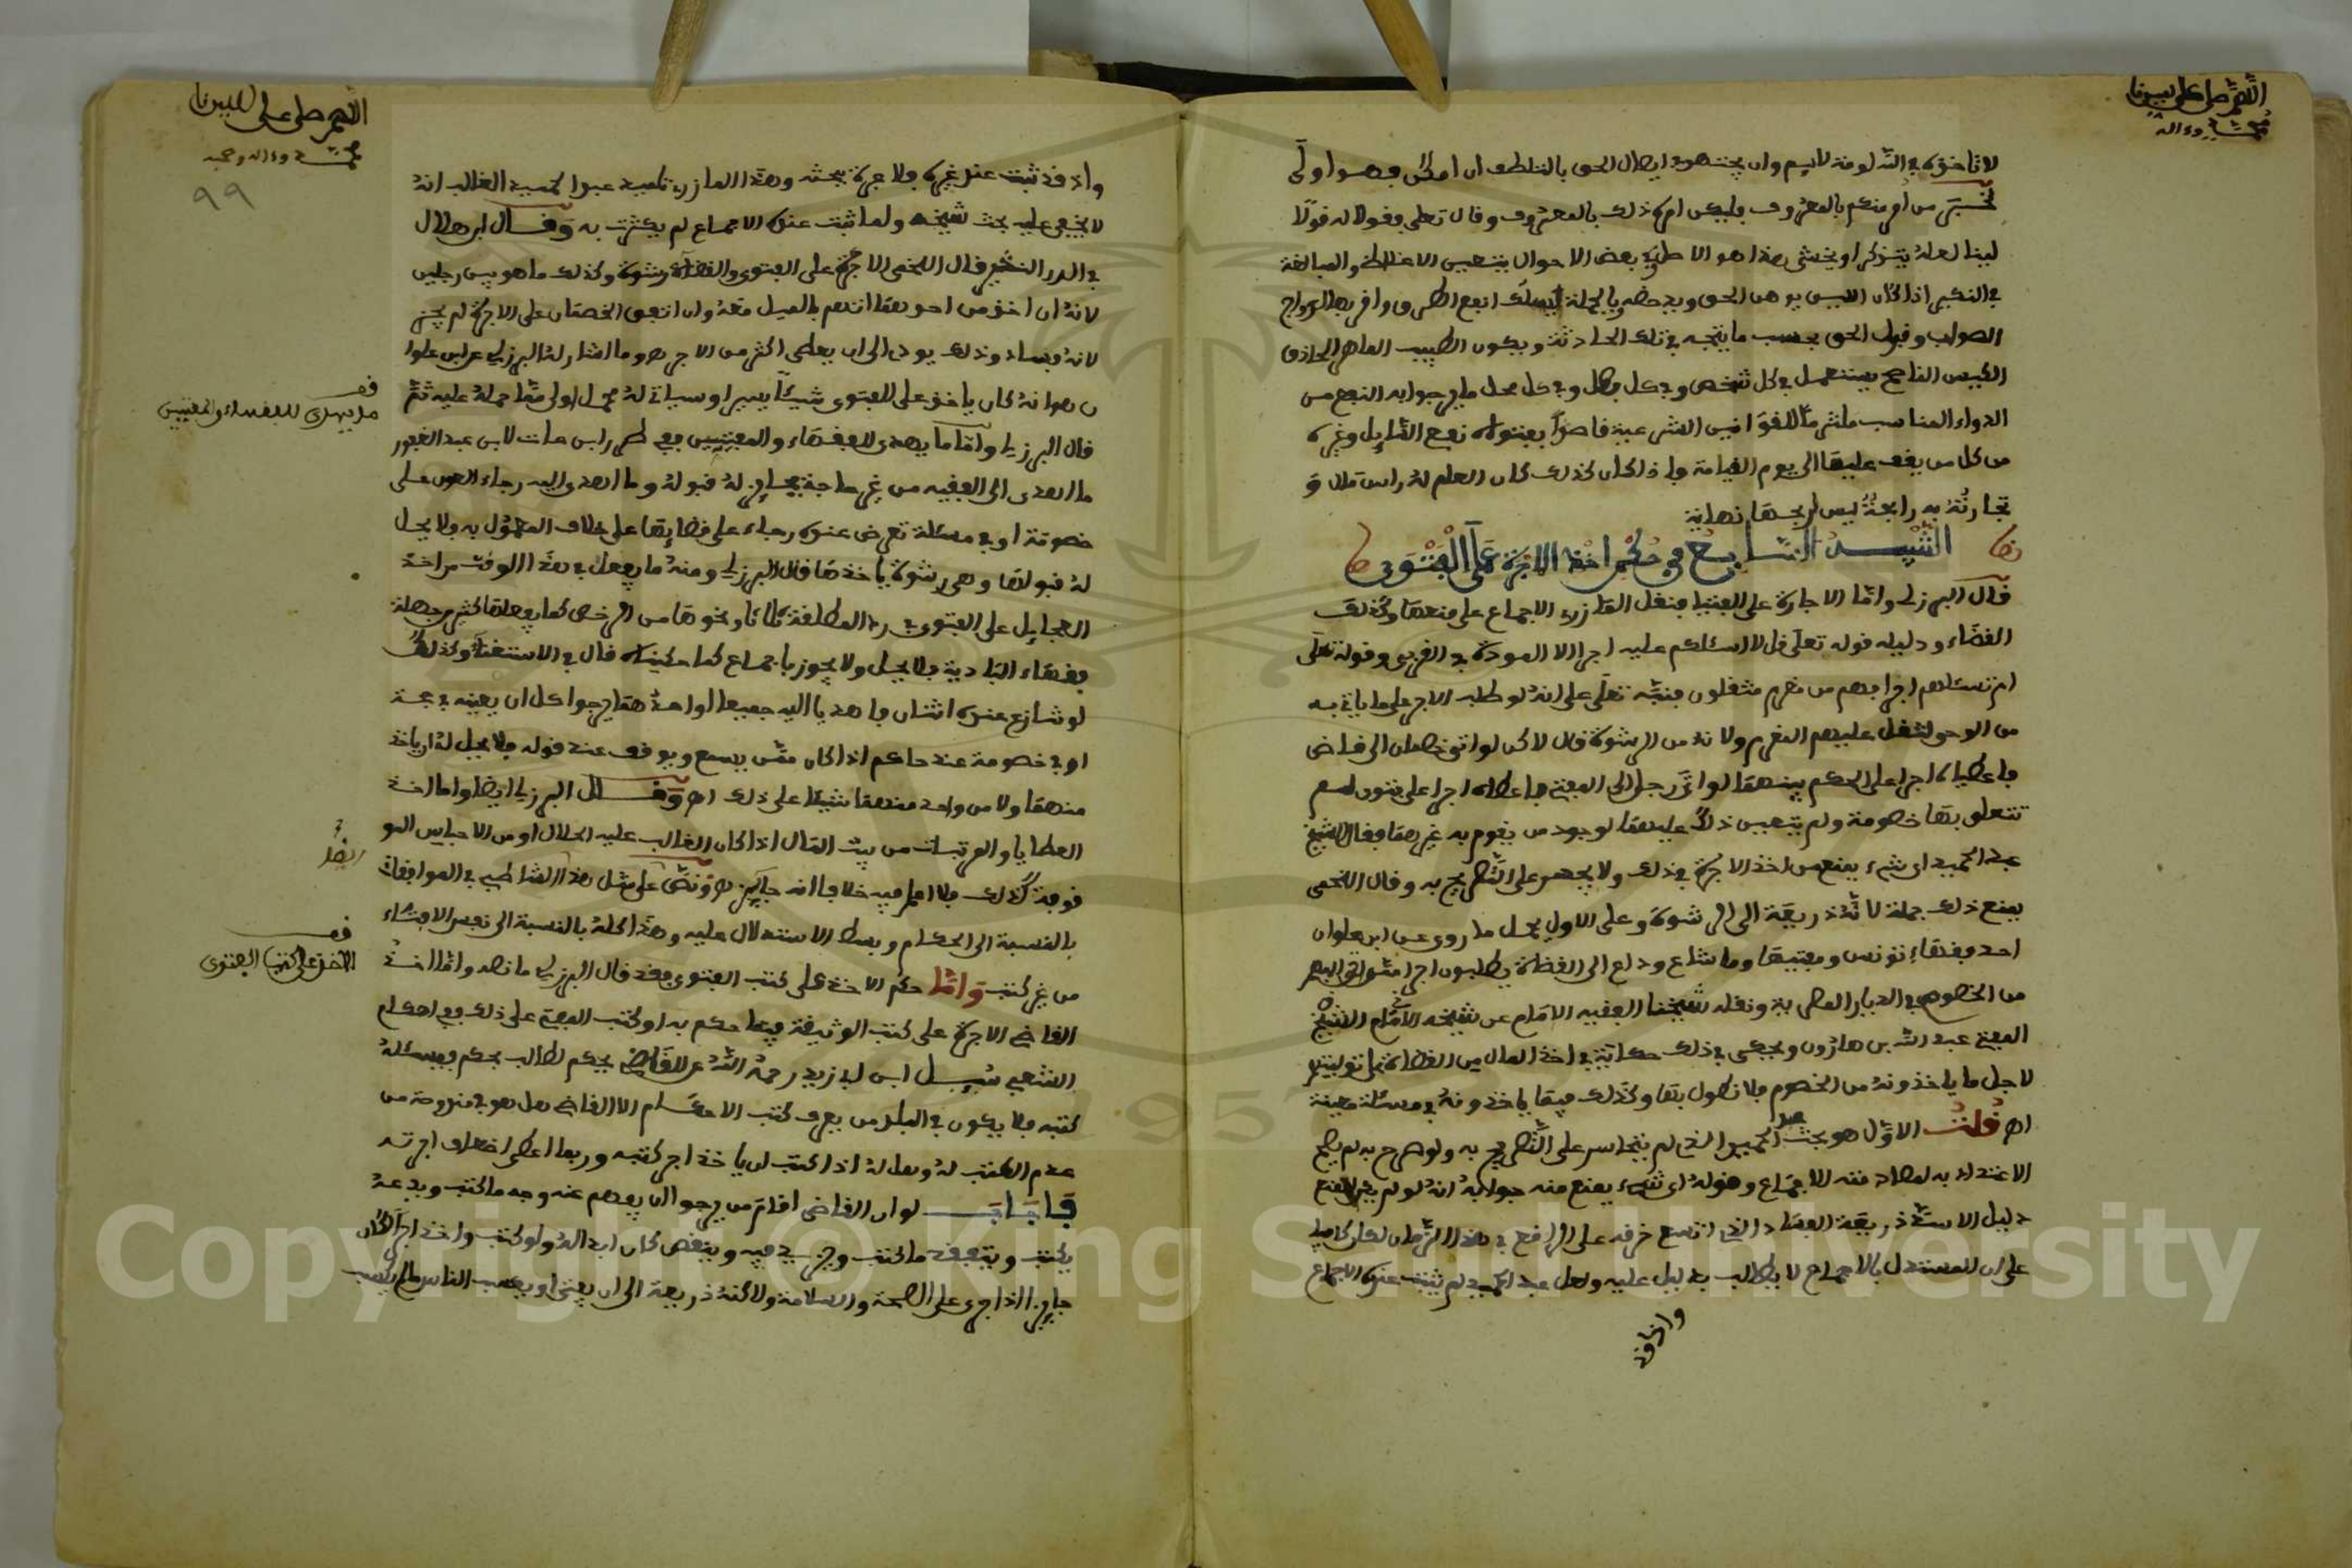 اللهم صل على نبينا
محمد وءاله
لا تاخذه في الله لومة لايم وان يجتهد في ايصال الحق بالتلطف ان امكن وهو اولى
من امر منكم بالمعروف فليكن امره ذلك بالمعروف وقال تعلى فقولا له قولا
لينا لعله يتذكر او يخشى هذا هو الاصل وفي بعض الاحوال يتعين الاغلاظ والمبالغة
في النكير اذا كان اللين يوهن الحق ويدحضه وبالجملة يسلك انفع الطرق واقربها لرواج
الصواب وقبول الحق بحسب ما يتجه في تلك الحادثة ويكون الطبيب الماهر الحاذق
الكيس الناصح يستعمل في كل شخص وفي كل فصل وفي كل محل ما يرجوا به النفع من
الدواء المناسب ملتزما للقوانين الشرعية قاصدا بفتواه نفع السايل وغيره
من كل من يقف عليها الى يوم القيامة واذا كان كذلك كان العلم له راس مال و
تجارته به رابحة ليس لربحها نهاية
التنبيه السابع في حكم اخذ الاجرة على الفتوى
قال البرزلي واما الاجارة على الفتيا فنقل المازري الاجماع على منعها وكذلك
القضاء ودليله قوله تعلى قل لا اسئلكم عليه اجرا الا المودة في القربى وقوله تعلى
ام تسئلهم اجرا فهم من مغرم مثقلون فنبه تعلى على انه لو طلب الاجر على ما ياتي به
من الوحي لثقل عليهم المغرم ولانه من الرشوة قال لاكن لو اتى خصمان الى قاضي
فاعطياه اجرا على الحكم بينهما او اتى رجل الى المفتي فاعطاه اجرا على فتوى لم
تتعلق بها خصومة ولم يتعين ذلك عليهما لوجود من يقوم به غيرهما فقال الشيخ
عبد الحميد اي شيء يمنع من اخذ الاجرة في ذلك ولا يجسر على التصريح به وقال اللخمي
يمنع ذلك جملة لانه ذريعة الى الرشوة وعلى الاول يحمل ما روي عن ابن علوان
احد فقهاء تونس ومفتيها وما شاع وذاع الى القضاة يطلبون اجرا
من الخصوم في الديار المصرية ونقله شيخنا الفقيه الامام عن شيخه الامام الشيخ
المفتي عبد الله بن هارون ويحكى في ذلك حكاية في اخذ المال من القضاة
لاجل ما ياخذونه من الخصوم فلا نطول بها وكذلك فيما ياخذونه في مسئلة معينة
اه قلت الاول هو بحث عبد الحميد الذي لم يتجاسر على التصريح به ولو صرح به لم يصح
الاعتداد به لمصادمته للاجماع وقوله اي شيء يمنع منه جوابه انه لو لم يكن
دليل الا سد ذريعة الفساد الذي اتسع خرقه على الراقع في هذا الزمان لكان كافيا
على ان المستدل بالاجماع لا يطالب بدليل عليه ولعل عبد الحميد لم يثبت عنده الاجماع
واذ قد
اللهم صل على نبينا
محمد وءاله وصحبه
٩٩
واذ قد ثبت عند غيره فلا عبرة ببحثه وهذا المازري تلميذ عبد الحميد الغالب انه
لا يخفى عليه بحث شيخه ولما ثبت عنده الاجماع لم يكترث به وقال ابن هلال
في الدر النثير قال اللخمي الاجرة على الفتوى والقضاء رشوة وكذلك ما هو بين رجلين
لانه ان اخذ من احدهما اتهم بالميل معه وان اتفق الخصمان على الاجرة لم يجز
لانه فساد وذلك يودي الى ان يعطى اكثر من الاجر وما اشار له البرزلي عن ابن علوان
هو انه كان ياخذ على الفتوى شيئا يسيرا وسياتي له محمل اولى مما حمله عليه ثم
قال البرزلي واما ما يهدى للفقهاء والمفتيين ففي طرر ابن عات لابن عبد الغفور
ما اهدي الى الفقيه من غير حاجة فجايز له قبوله وما اهدي اليه رجاء العون على
خصومة او في مسئلة تعرض عنده رجاء على قضايها على خلاف المعمول به ولا يحل
له قبولها وهي رشوة ياخذها قال البرزلي ومنه ما يفعل في هذا الوقت من اخذ
الجعايل على الفتوى في رد المطلقة ثلاثا ونحوها من الرخص كما يفعلها كثير من جهلة
فقهاء البادية فلا يحل ولا يجوز باجماع كما حكيناه قال في الاستغناء وكذلك
لو تنازع عنده اثنان فاهديا اليه جميعا او احدهما يرجوا كل ان يعينه في حجة
او في خصومة عند حاكم اذا كان ممن يسمع ويوقف عند قوله فلا يحل له ان ياخذ
منهما ولا من واحد منهما شيئا على ذلك اه وقال البرزلي ايضا واما اخذ
العطايا والمرتبات من بيت المال اذا كان الغالب عليه الحلال او من الاحباس
كذلك فلا اعلم فيه خلافا انه جايز اه ونص على مثل هذا الشاطبي في الموافقات
بالنسبة الى الحكام وبسط الاستدلال عليه وهذا كله بالنسبة الى نفس الافتاء
من غير كتب واما حكم الاخذ على كتب الفتوى فقد قال البرزلي ما نصه واما اخذ
القاضي الاجرة على كتب الوثيقة فيما حكم به او كتب المفتي على ذلك ففي احكام
الشعبي سئل ابن ابي زيد رحمه الله عن القاضي يحكم لطالب بحكم فيسئله
كتبه فلا يكون في البلد من يعرف كتب الاحكام الا القاضي هل هو في مندوحة من
عدم الكتب له وهل له اذا كتب ان ياخذ اجر كتبه وربما اعطي اضعاف اجرته
فاجاب لو ان القاضي اقام من يرجوا ان يفهم عنه وجه ما كتب ويدعه
يكتب ويتفقد ما كتب ويزيد فيه وينقص كان احب الي ولو كتب واخذ اجرا لكان
جايزا اذا جرى على الصحة والسلامة ولاكنه ذريعة الى ان يفتى او يكسب الناس
قف
ما يهدى للفقهاء والمفتيين
قف
الاخذ على كتب الفتوى